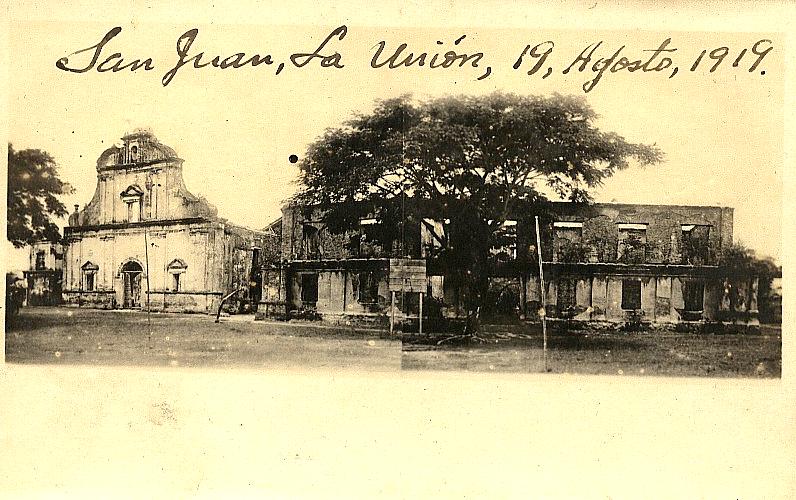 San Juan, La Unión, 19, Agosto, 1919.